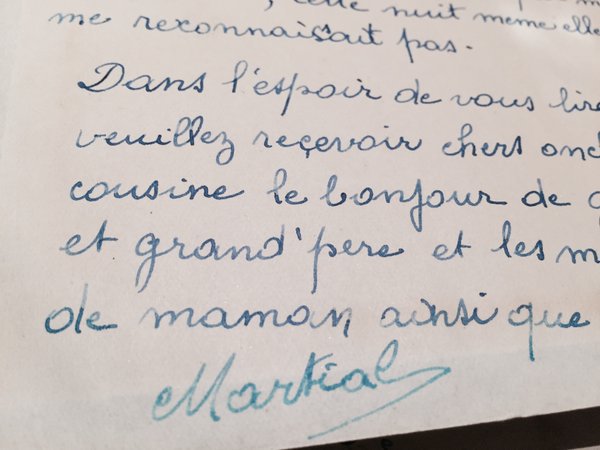 , cette nuit même elle
me reconnaissait pas.
Dans l'espoir de vous lire
veuillez reçevoir chers onc
cousine le bonjour de g
et grand'père et les m
de maman ainsi que
Martial